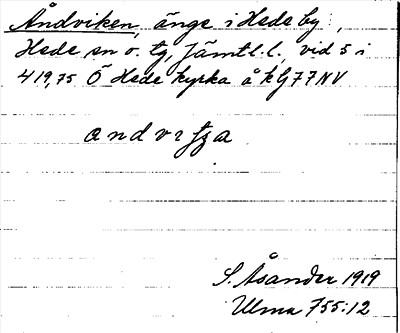 Åndviken, änge i Hede by,
Hede sn o. tg, Jämtl. l., vid 5 i
419,75 Ö Hede kyrka å k G77NV
andvi
S. Åsander 1919
Ulma 755:12